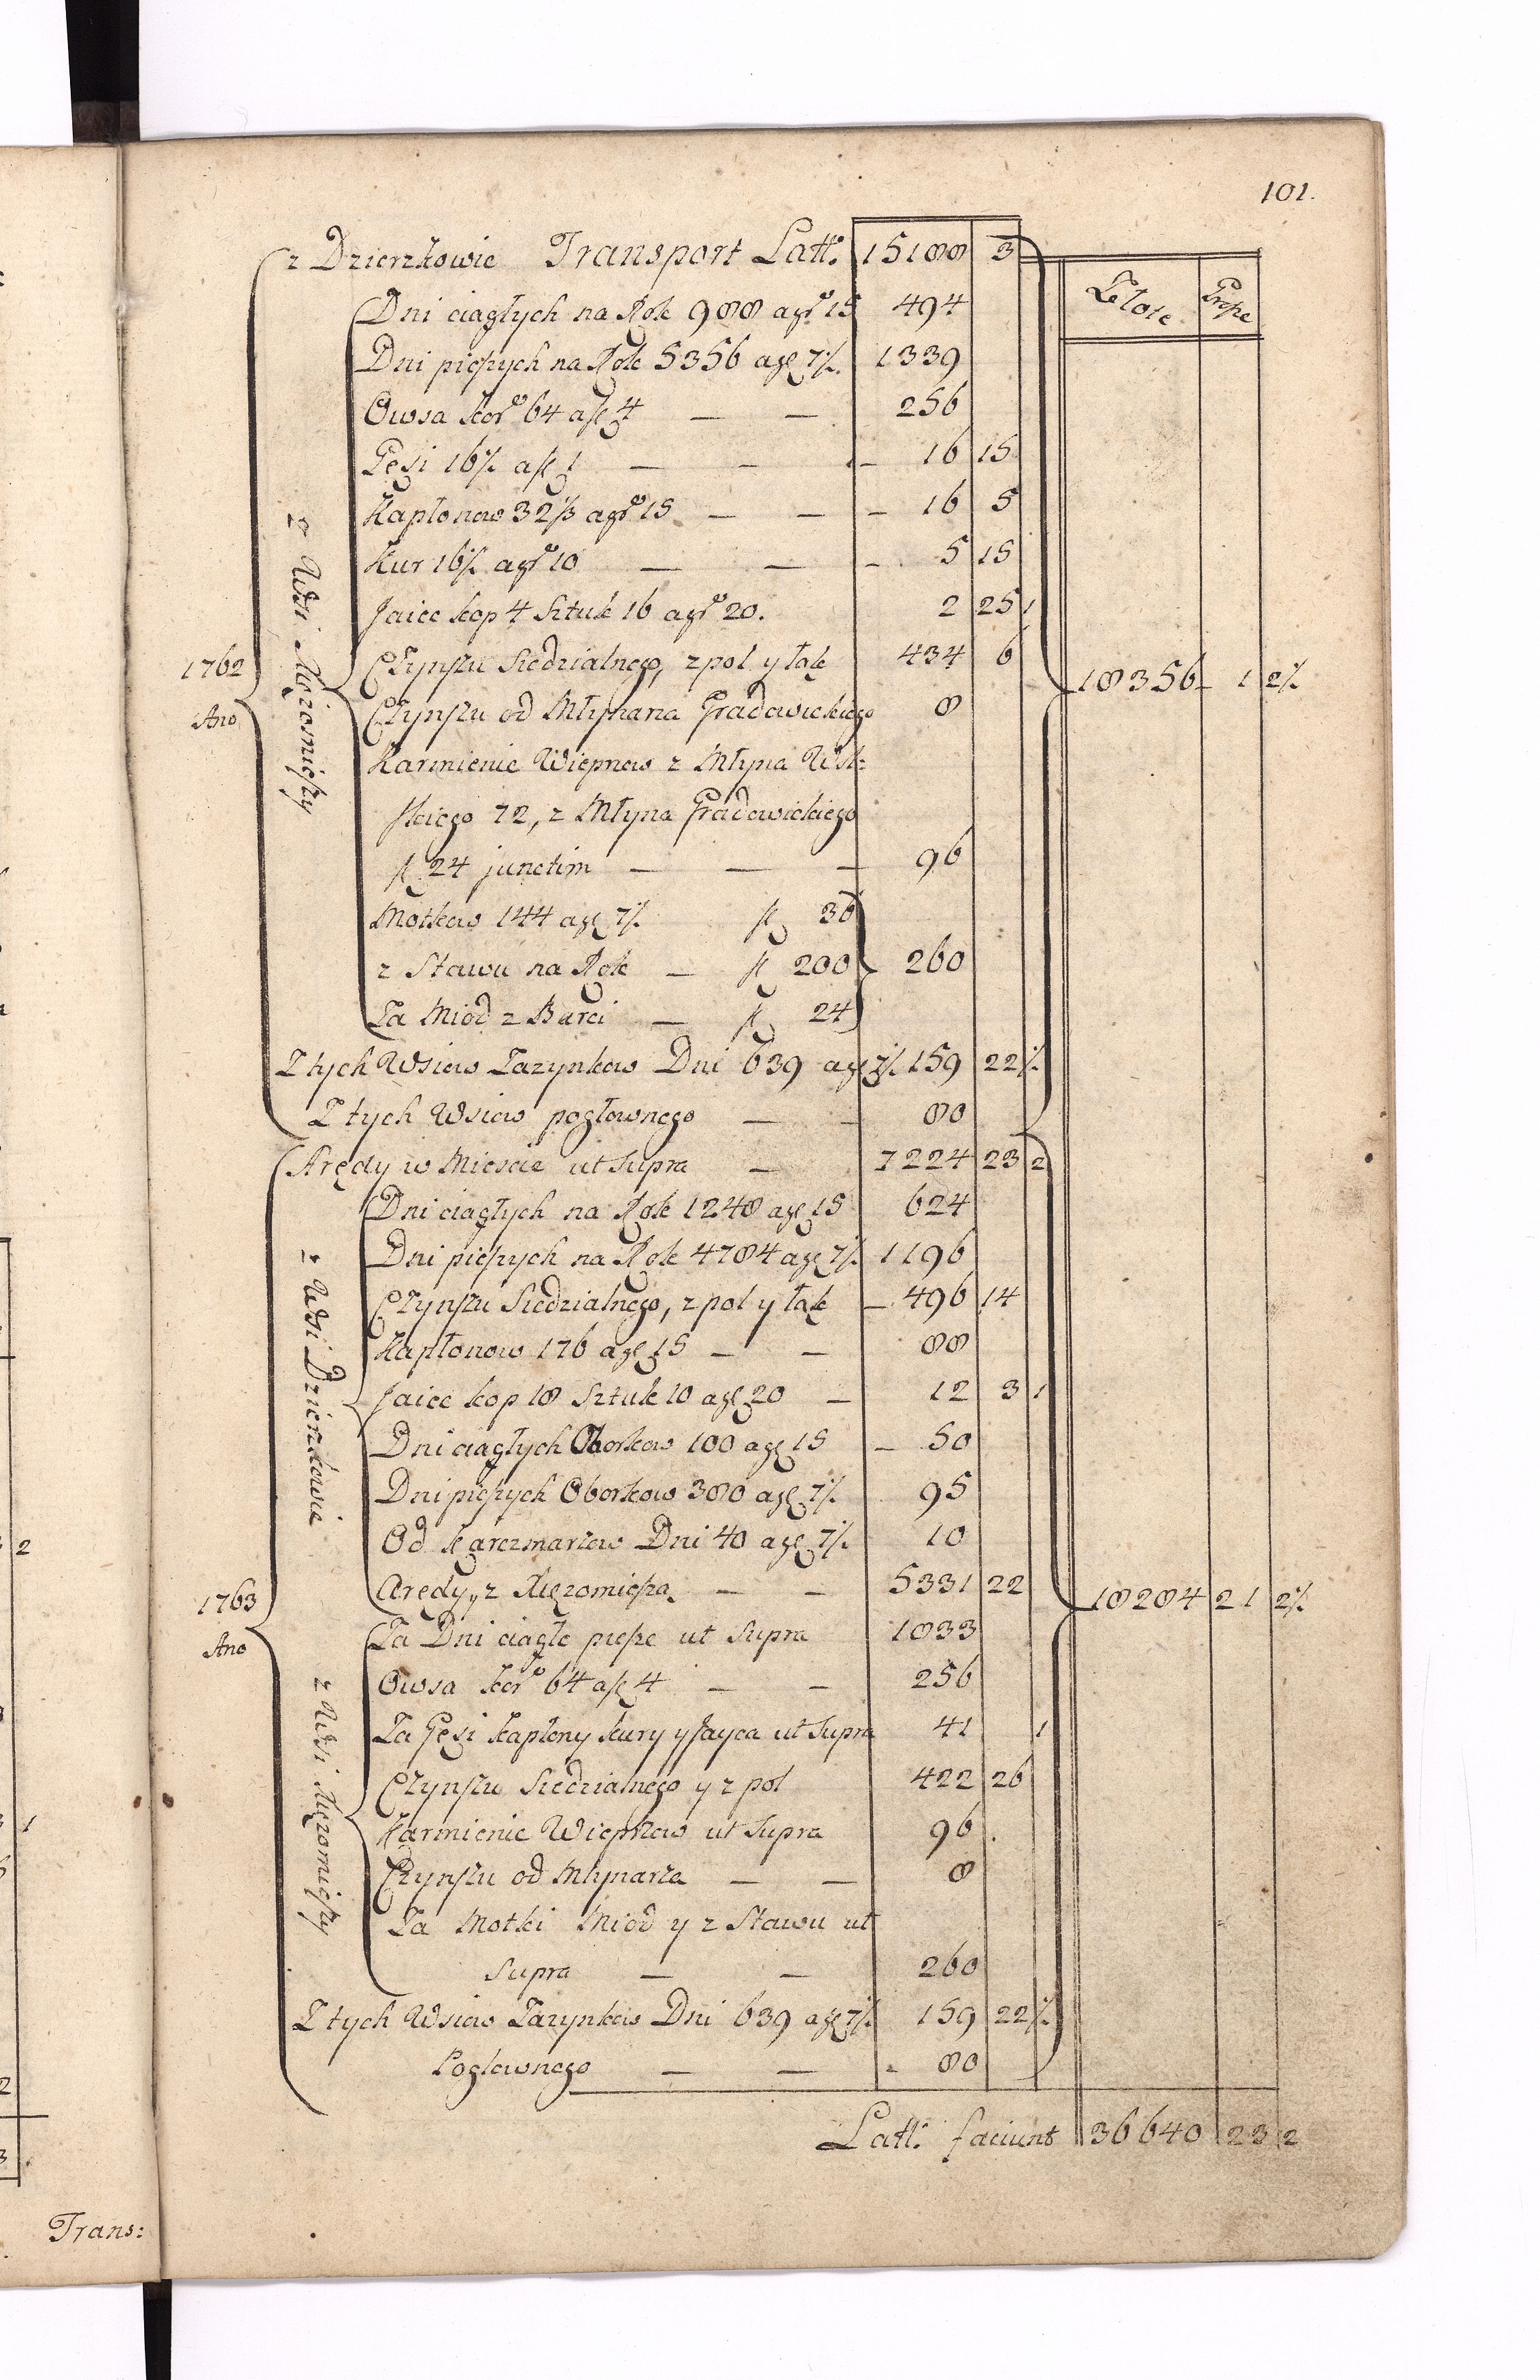 101.
z Dzierzkowic Transport Latt: 15188 3
Złote Grosze
Dni ciągłych na Rok 988 a gr 15 494
Dni pieszych na Rok 5356 a gr 7½ 1339
Owsa kor 64 a fl 4 — — 256
Gęsi 16½ a fl 1 — — — 16 15
Kapłonow 32⅓ a gr 15 — — — 16 5
Kur 16½ a gr 10 — — — 5 15
Jaiec kop 4 Sztuk 16 a gr 20. 2 25 1
z Wsi
1762
Ano
Czynszu Siedzialnego, z pol y łąk 434 6
18356 1 2½
Czynszu od Młynarza Gradowickiego 8
Karmienie Wieprzow z Młyna
skiego 72, z Młyna Gradowickiego
fl 24 junctim — — — 96
Motkow 144 a gr 7½ fl 36
z Stawu na Rok — fl 200 260
Za Miod z Barci — fl 24
Z tych Wsiow Zazynkow Dni 639 a gr 7½ 159 22½
Z tych Wsiow pogłownego — — 80
Arędy w Miescie ut Supra — 7224 23 2
Dni ciągłych na Rok 1248 a gr 15 624
Dni pieszych na Rok 4784 a gr 7½ 1196
Czynszu Siedzialnego, z pol y łąk — 496 14
Kapłonow 176 a gr 15 — — 88
z Wsi Dzierzkowic
Jaiec kop 18 Sztuk 10 a gr 20 — 12 3 1
Dni ciągłych Oborkow 100 a gr 15 — 50
Dni pieszych Oborkow 380 a gr 7½ 95
Od Karczmarzow Dni 40 a gr 7½ 10
Arędy, z Xięzomiesza — — 5331 22
1763
Ano
18284 21 2½
Za Dni ciągłe piesze ut Supra 1833
Owsa kor 64 a fl 4 — — 256
Za Gęsi Kapłony kury y Jayca ut Supra 41 1
z Wsi Xięzomieszy
Czynszu Siedzialnego y z pol 422 26
Karmienie Wieprzow ut Supra 96
Czynszu od Młynarza — — 8
Za Motki Miod y z Stawu ut
Supra — — 260
Z tych Wsiow Zazynkow Dni 639 a gr 7½ 159 22½
Pogłownego — — 80
Latt: faciunt 36640 23 2
Trans: